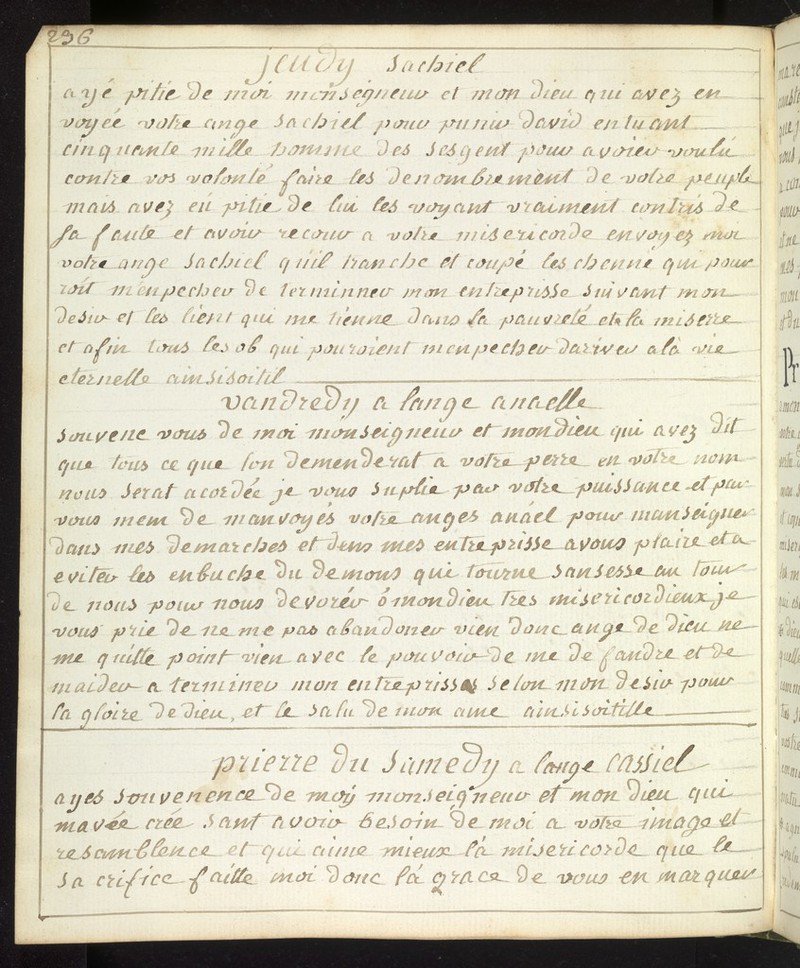 236
jeudy sachiel
ayé pitié de moi monseigneur et mon dieu qui avez en
voyeé votre ange sachiel pour punir david en tuant
cinquante mille homme des ses gent pour avoier voulú
contre vos volonté faire les denombrement de votre peuple
mais avez eú pitié de lui les voyant vraiment contris de
sa faute et avoir recour a votre misericorde envoyez moi
votre ange sachiel qu'il tranche et coupé les chenne qui pour
roit m'enpecher de terminner mon entreprisse suivant mon
desir et les lient qui me tienne dans la pauvreté et la miserre
et afin tous les ob qui pouroient menpecher dariver a la vie
eternelle ainsisoitil
vandredy a lange anaelle
souvene vous de moi monseigneur et mondieu qui avez dit
que tous ce que lon demenderat a votre perre en votre nom
nous serat acordée je vous suplie par votre puissance et par
vous mem de manvoyés votre anges anáel pour manseigner
dans mes demarches et dens mes entreprisse a vous plaire et a
eviter les enbuche du demons qui tourne sansesse au tour
de nous pour nous devorér ô mondieu tres misericordieux je
vous prie de ne me pas abandoner vien donc ange de dieu ne
me quitte point vien avec le pouvoir de me defandre et de
maider a terminer mon entreprisse selon mon desir pour
la gloire de dieu, et le salu de mon ame ainsisoitille
prierre du samedy a lange cassiel
ayes souvenence de moÿ monseigneur et mon dieu qui
mavée crée sant avoir besoin de moi a votre image et
resamblence et qui aime mieux lá misericorde que le
sacrifice faitte moi donc lá grace de vous en marquer